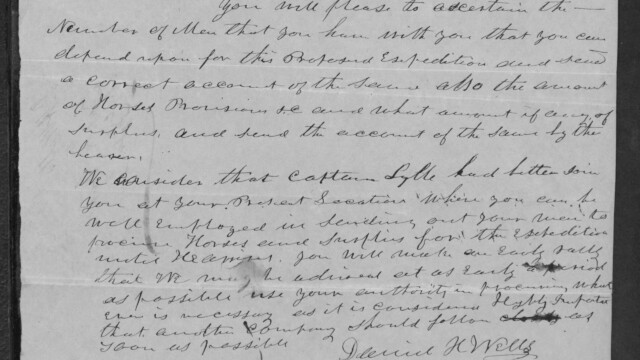 You will please to ascertain the
Number of Men that you have with you that you can
depend upon for this Proposed Expedition and send
a correct account of the same also the amount
of Horses Provisions &c and what amount if any of
Surplus, and send the account of the same by the
bearer.
We consider that Captain Lytle had better Join
you at your Present Location Where you can be
well Employed in sending out your men to
procure Horses and Surplus for the Expedition
until He arrives. you will make an Early rally
that We may be advised at as Early a period
as possible use your authority in procuring What
Ever is necessary as it is considered Highly
that another Company should follow as
soon as possible
Daniel H Wells